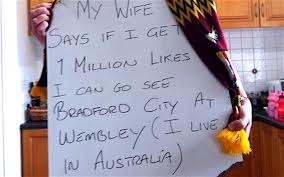 My Wife
Says if I get
1 Million Likes
I can go see
Bradford City at
Wembley (I live
in Australia)